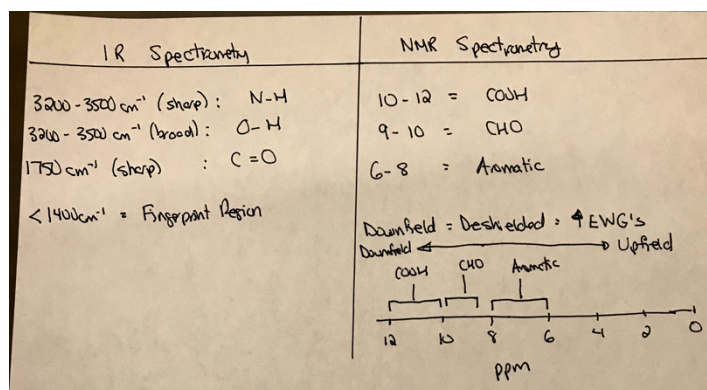 IR Spectrometry
3200-3500 cm⁻¹ (sharp): N-H
3200-3500 cm⁻¹ (broad): O-H
1750 cm⁻¹ (sharp) : C=O
<1400cm⁻¹ = Fingerprint Region
NMR Spectrometry
10-12 = COOH
9-10 = CHO
6-8 = Aromatic
Downfield = Deshielded = ↑EWG's
Downfield ↔ Upfield
COOH CHO Aromatic
12 10 8 6 4 2 0
ppm